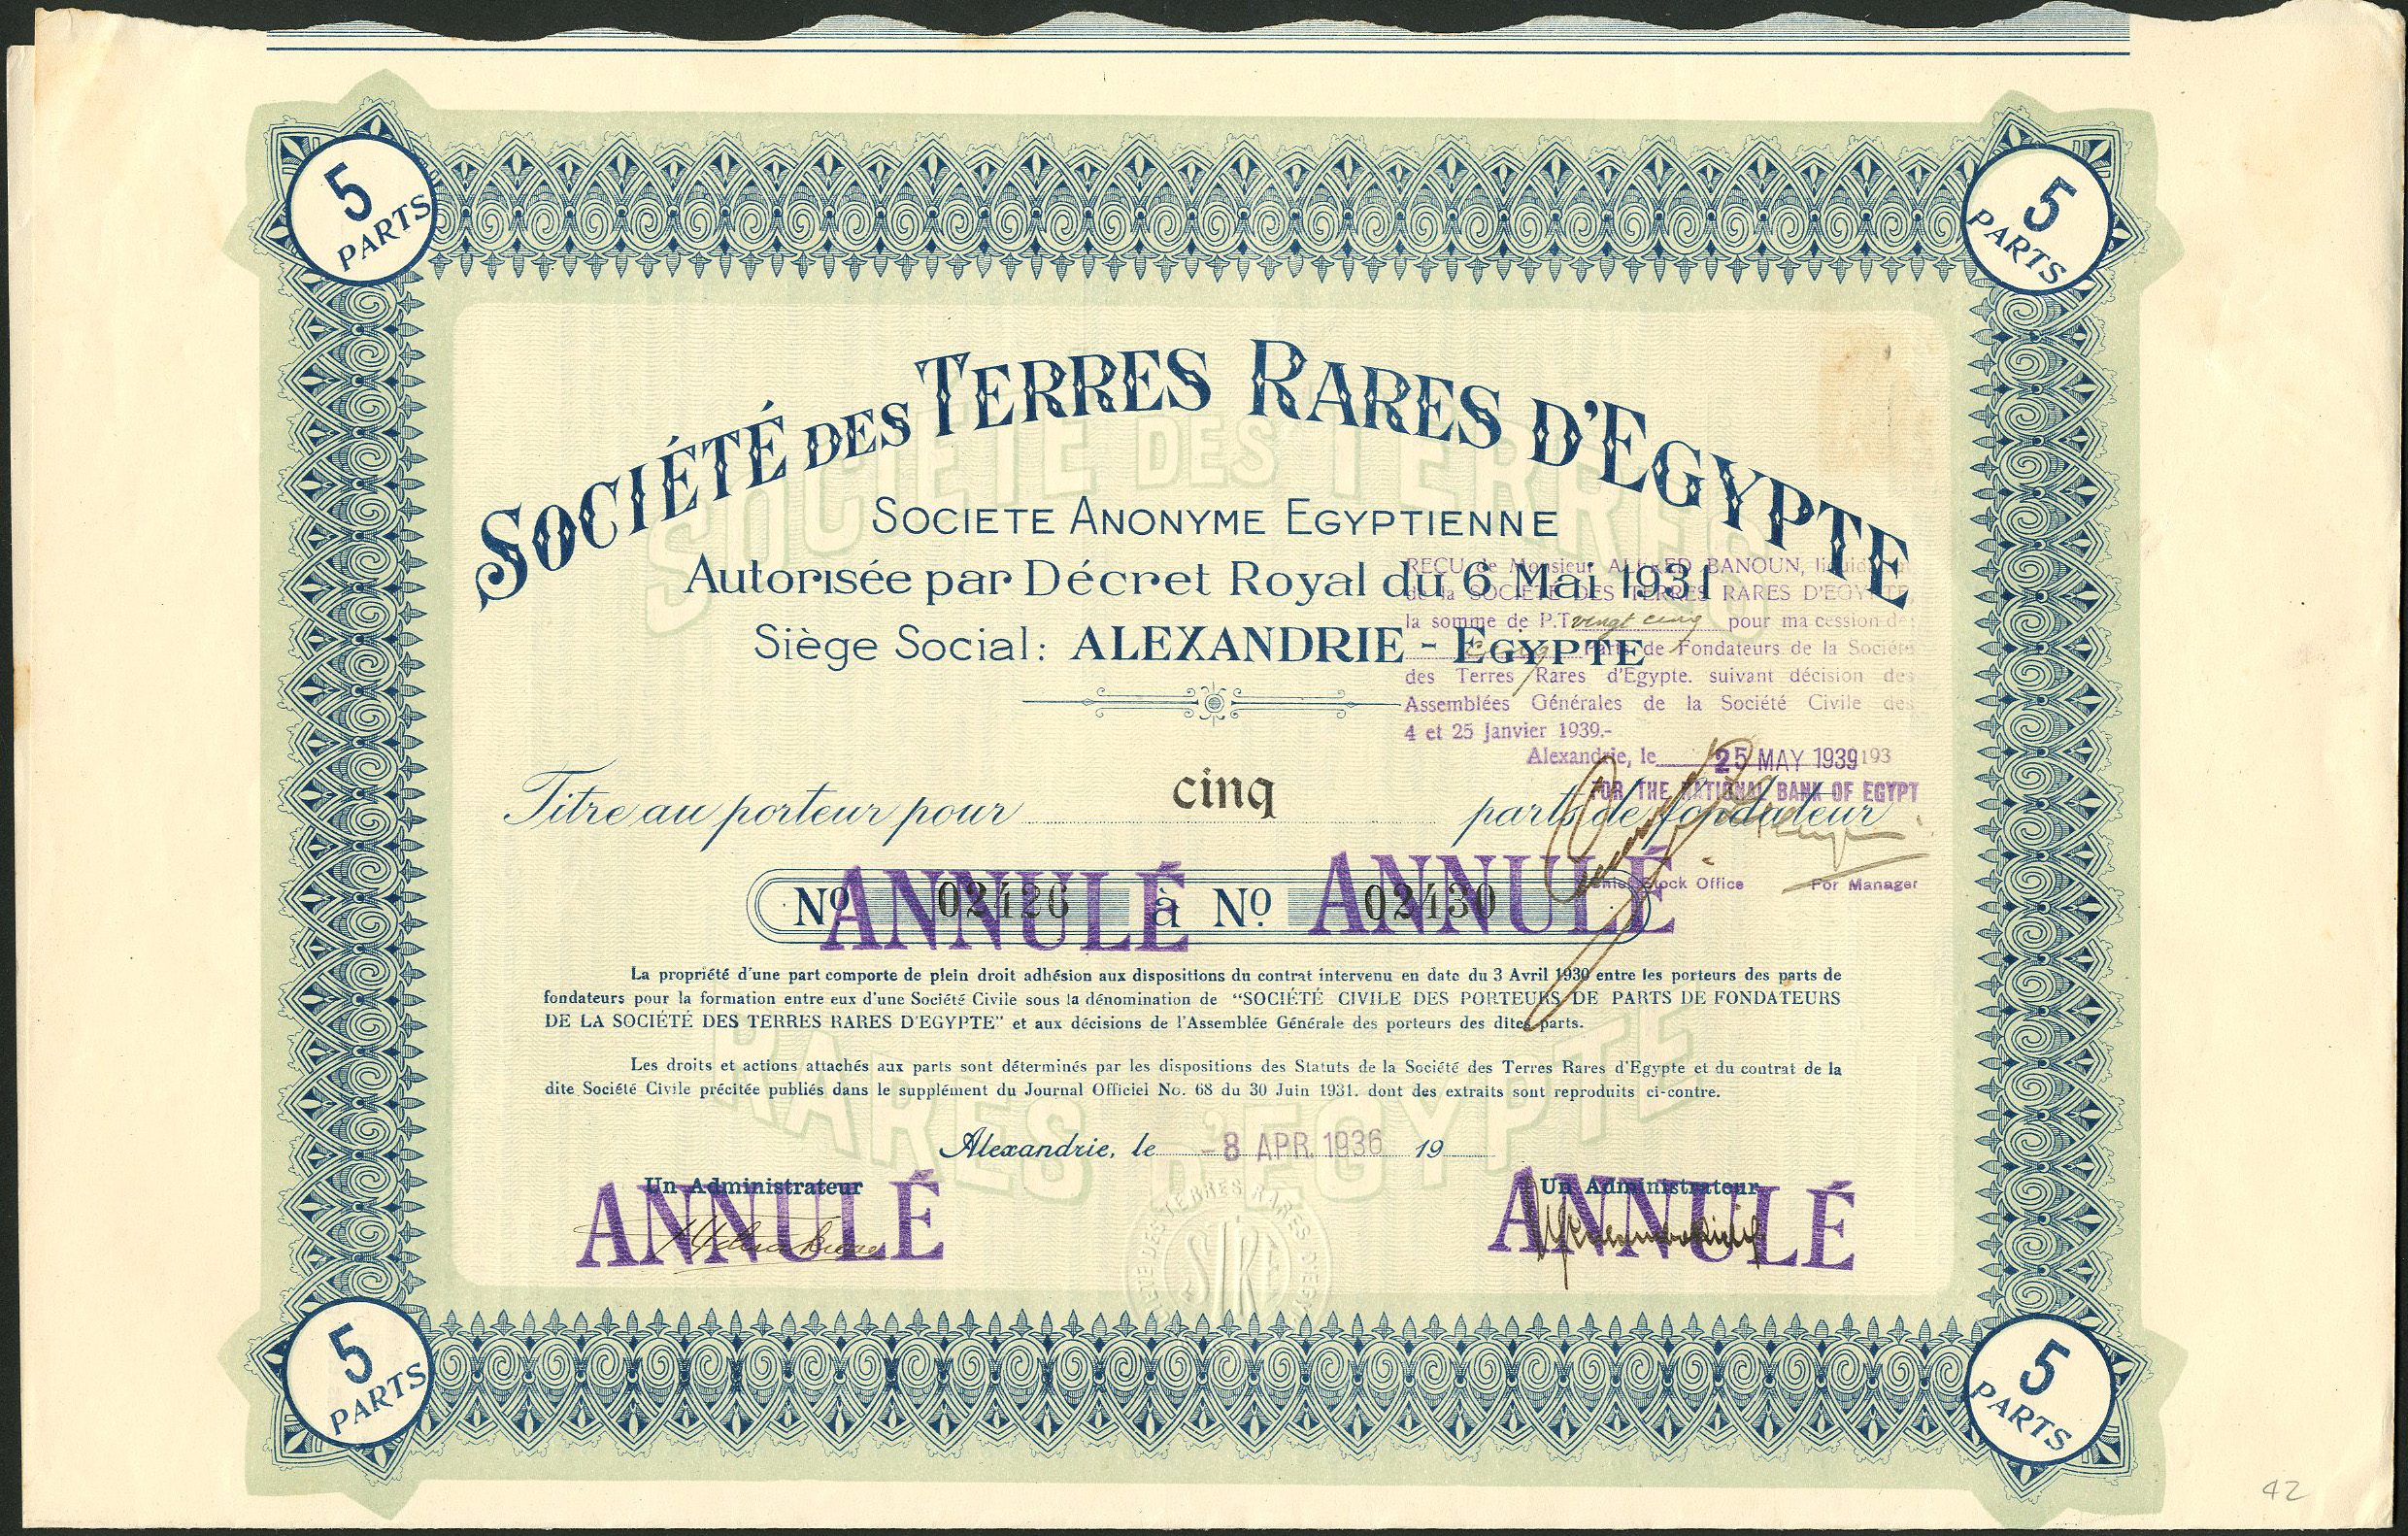 5 PARTS
5 PARTS
SOCIÉTÉ DES TERRES RARES D'EGYPTE
SOCIETE ANONYME EGYPTIENNE
Autorisée par Décret Royal du 6 Mai 1931
Siège Social: ALEXANDRIE - EGYPTE
REÇU de Monsieur ALFRED BANOUN,
de la SOCIÉTÉ DES TERRES RARES D'EGYPTE,
la somme de P.T. vingt cinq pour ma cession de
cinq Parts de Fondateurs de la Société
des Terres Rares d'Egypte. suivant décision des
Assemblées Générales de la Société Civile des
4 et 25 Janvier 1939.-
Alexandrie, le 25 MAY 1939 193
FOR THE NATIONAL BANK OF EGYPT
Titre au porteur pour cinq parts de fondateur
Stock Office For Manager
Nº 02426 à Nº 02430
ANNULÉ ANNULÉ
La propriété d'une part comporte de plein droit adhésion aux dispositions du contrat intervenu en date du 3 Avril 1930 entre les porteurs des parts de
fondateurs pour la formation entre eux d'une Société Civile sous la dénomination de “SOCIÉTÉ CIVILE DES PORTEURS DE PARTS DE FONDATEURS
DE LA SOCIÉTÉ DES TERRES RARES D'EGYPTE” et aux décisions de l'Assemblée Générale des porteurs des dites parts.
Les droits et actions attachés aux parts sont déterminés par les dispositions des Statuts de la Société des Terres Rares d'Egypte et du contrat de la
dite Société Civile précitée publiés dans le supplément du Journal Officiel No. 68 du 30 Juin 1931. dont des extraits sont reproduits ci-contre.
Alexandrie, le -8 APR. 1936 19
Un Administrateur Un Administrateur
ANNULÉ ANNULÉ
SOCIÉTÉ DES TERRES RARES D'EGYPTE
STRE
SOCIÉTÉ DES TERRES
RARES D'EGYPTE
5 PARTS
5 PARTS
42